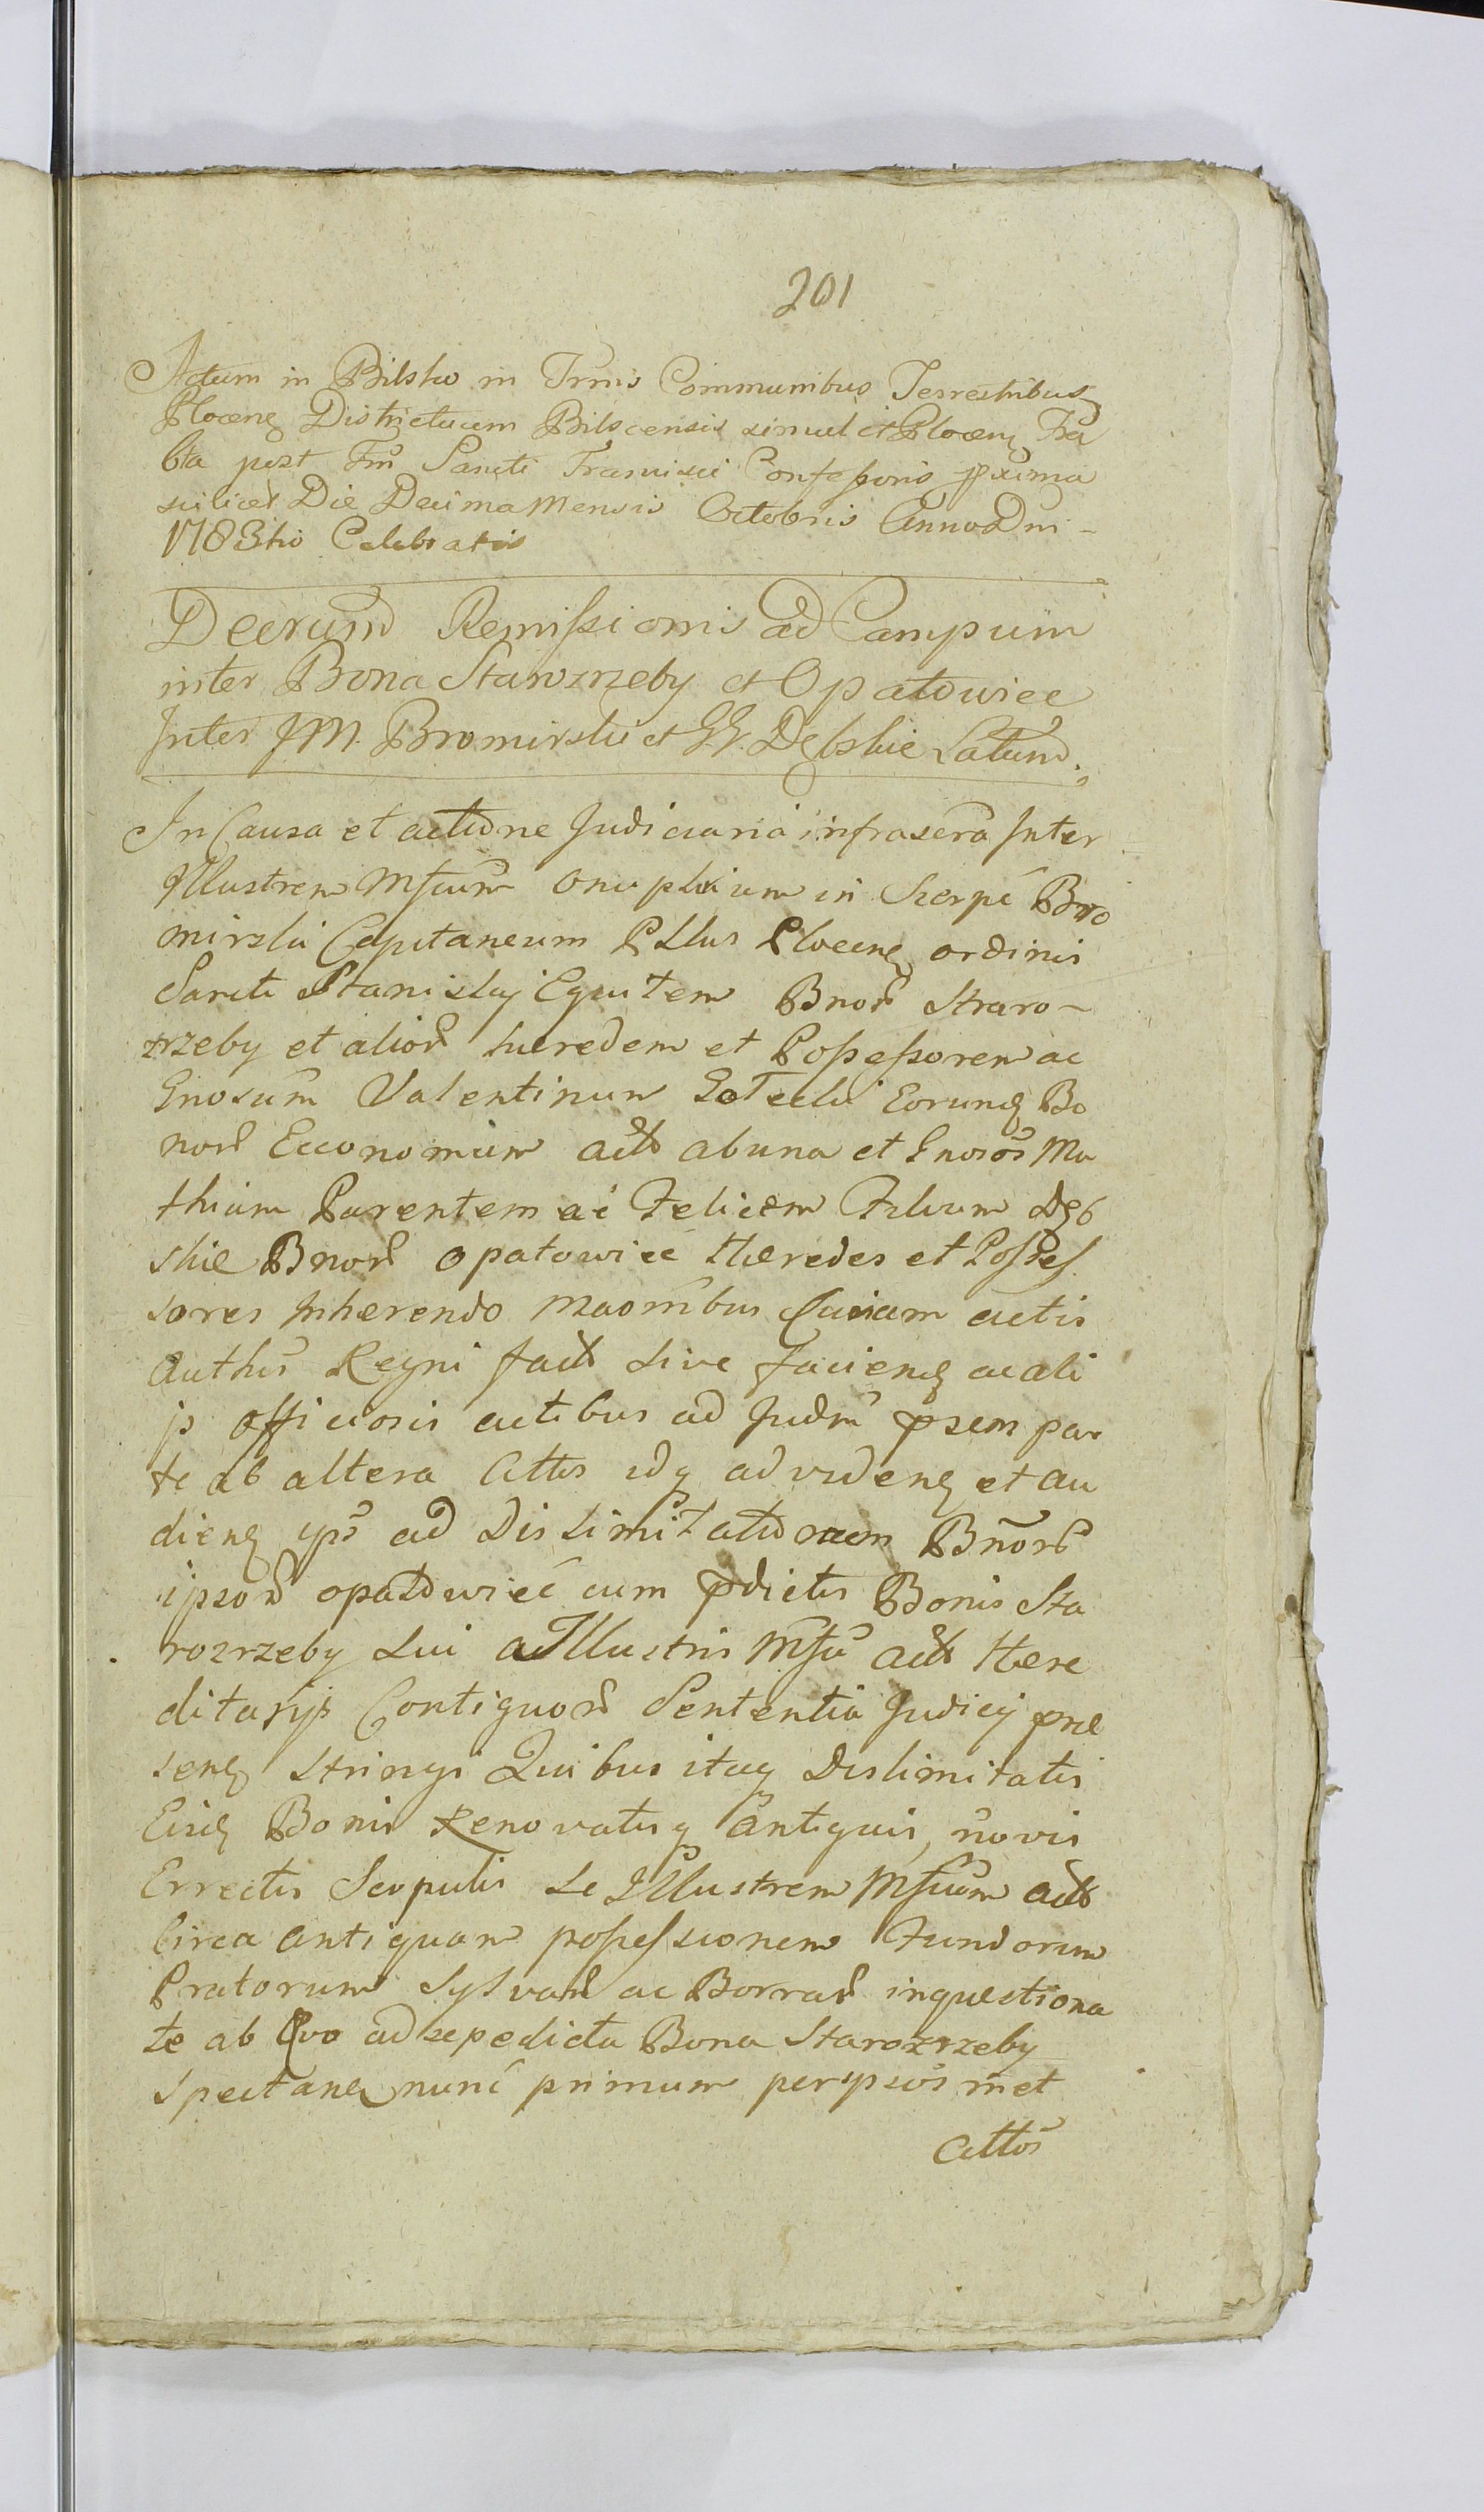 201
Actum in Bilsko in Trmis Communibus Terrestribus
Plocens Districtuum Bilscensis simul et Plocens Fra
bta post Fm Sancti Francisci Confessoris pxima
scilicet Die Decima Mensis Octobris Anno Dni -
1783tio Celebratis
Decrum Remissionis ad Campum
inter Bona Starozrzeby et Opatowiec
Inter JM. Bromirski et GG. Dębskie Latum.
In Causa et actione Judiciaria infrascra Inter
Illustrem Mfcum Onuphrium in Sierpc Bro
mirski Capitaneum Pllus Plocens ordinis
Sancti Stanislaj Equitem Bnor Straro-
zrzeby et alior heredem et Possessorem ac
Gnosum Valentinum Eorund Bo
nor Economum act ab una et Gnosos Ma
thiam Parentem ac Felicem Filium Dęb
skie Bnor Opatowiec Heredes et Posses
sores Inherendo maonibus quiam actis
Authis Regni fact sive faciend ac ali
js officiosis actibus ad Judm psem par
te ab altera Cittos idq ad vidend et au
diend ipos ad Dislimitationem Bnor
ipsor opatowiec cum pdictis Bonis Sta
rozrzeby sui a Illustris Mfci act Here
ditarijs Contiguor Sententia Judicij præ
sens stringi Quibus itaq Dislimitatis
Eisd Bonis Renovatisq antiquis, novis
Errectis Scopulis se Illustrem Mfcum act
Circa antiquam possessionem Fundorum
Pratorum Sylvar ac Borrar inquestiona
te ab Evo ad sepedicta Bona Starozrzeby
Spectans nunc primum per ipsos met
Cittos